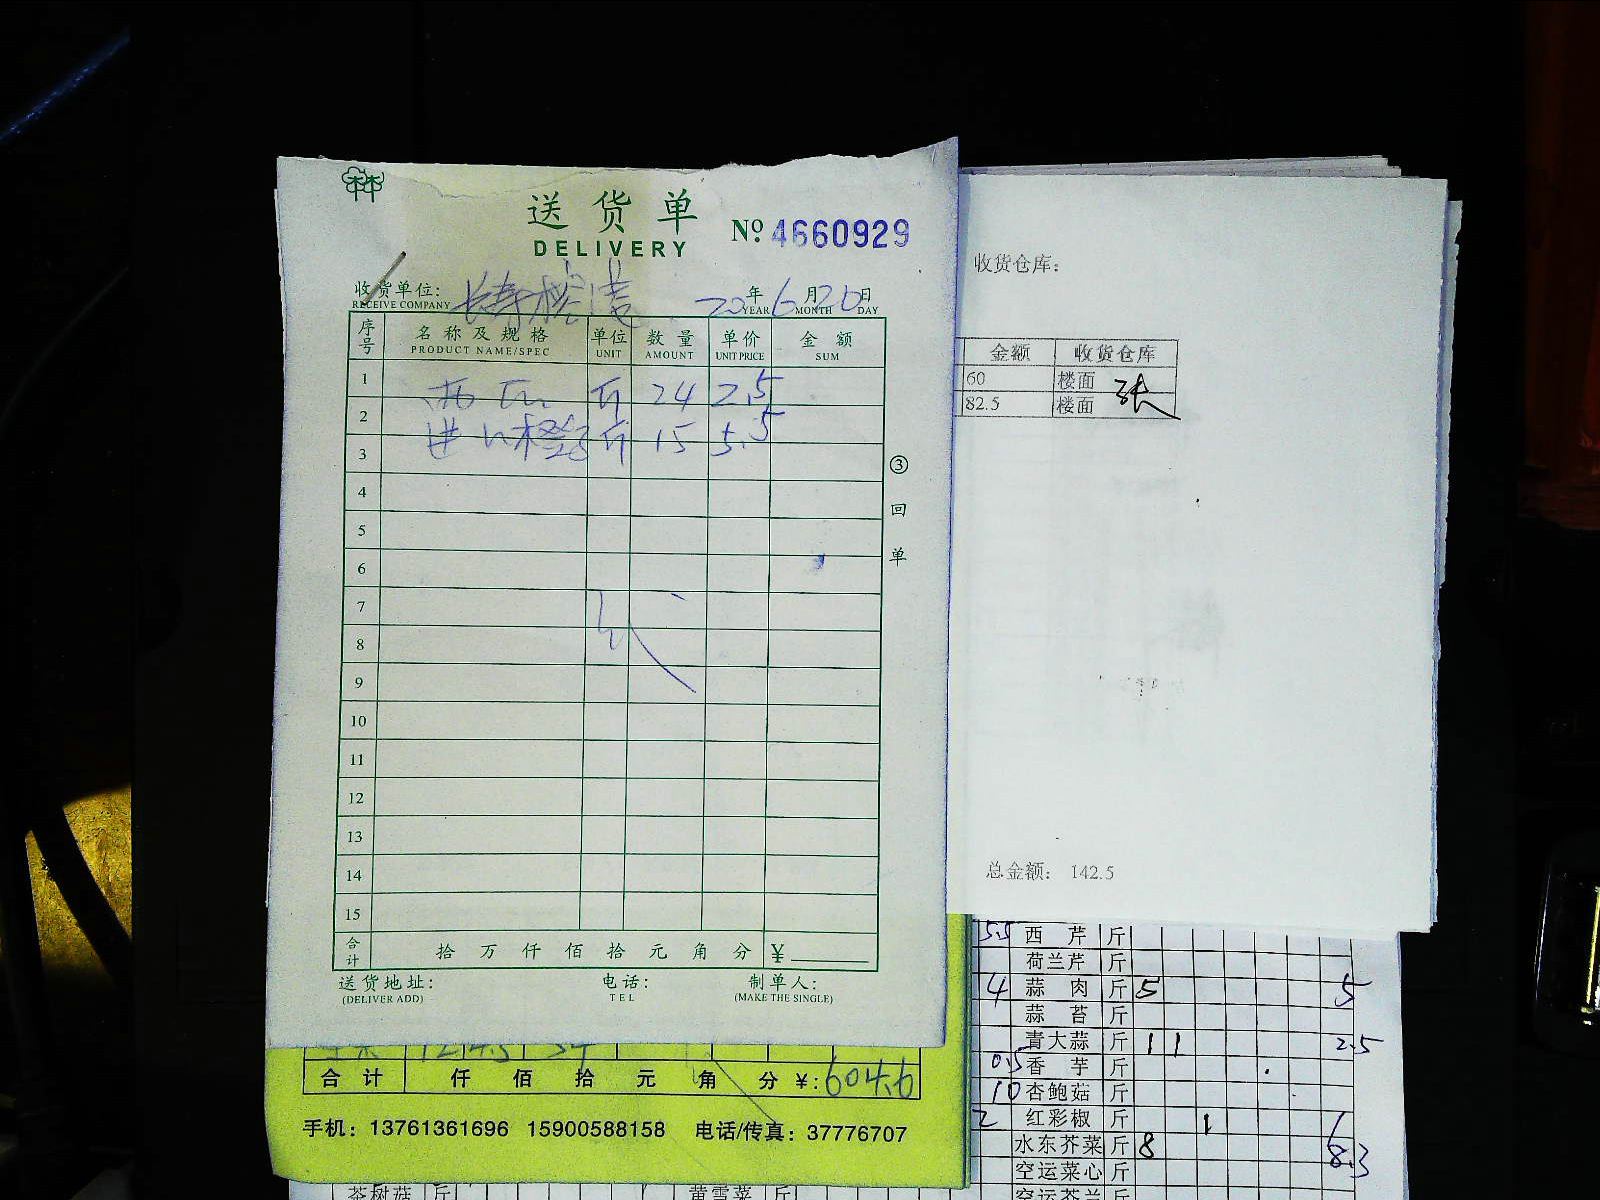 林
送货单
DELIVERY
No. 4660929
收货单位:
RECEIVE COMPANY
20年6月20日
YEAR MONTH DAY
序号 名称及规格 单位 数量 单价 金额
PRODUCT NAME/SPEC UNIT AMOUNT UNIT PRICE SUM
1 西瓜 斤 24 2.5
2 进口橙 斤 15 5.5
3
4
5
6
7
8
9
10
11
12
13
14
15
③回单
合计 拾万仟佰拾元角分 ¥
送货地址: 电话: 制单人:
(DELIVER ADD) TEL (MAKE THE SINGLE)
收货仓库:
金额 收货仓库
60 楼面
82.5 楼面
张
总金额: 142.5
合计 仟佰拾元角分 ¥: 604.6
手机: 13761361696 15900588158 电话/传真: 37776707
5.5 西芹 斤
荷兰芹 斤
4 蒜肉 斤 5 5
蒜苔 斤
青大蒜 斤 1 1 2.5
0.5 香芋 斤
10 杏鲍菇 斤
2 红彩椒 斤 1
水东芥菜 斤 8 8.3
空运菜心 斤
空运芥兰 斤
茶树菇 斤 黄雪菜 斤